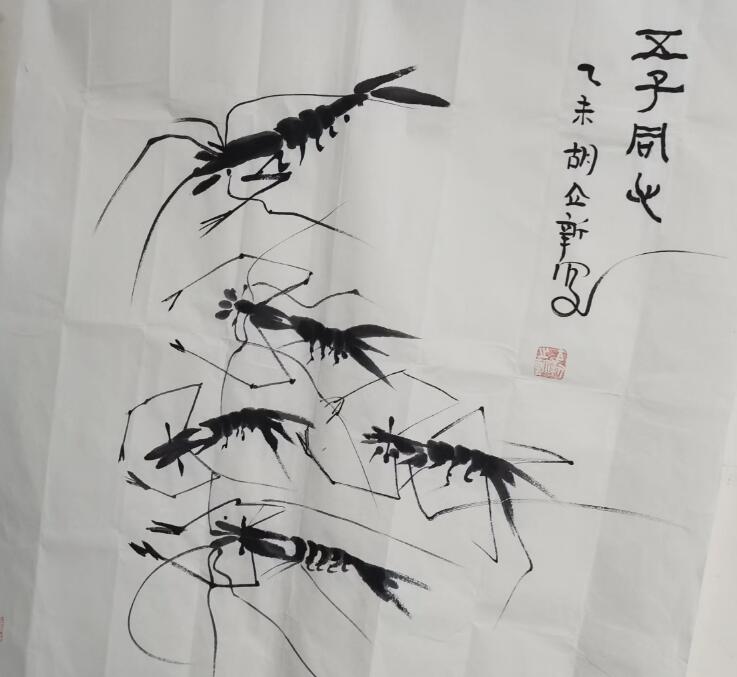 五子同心
乙未胡企新写